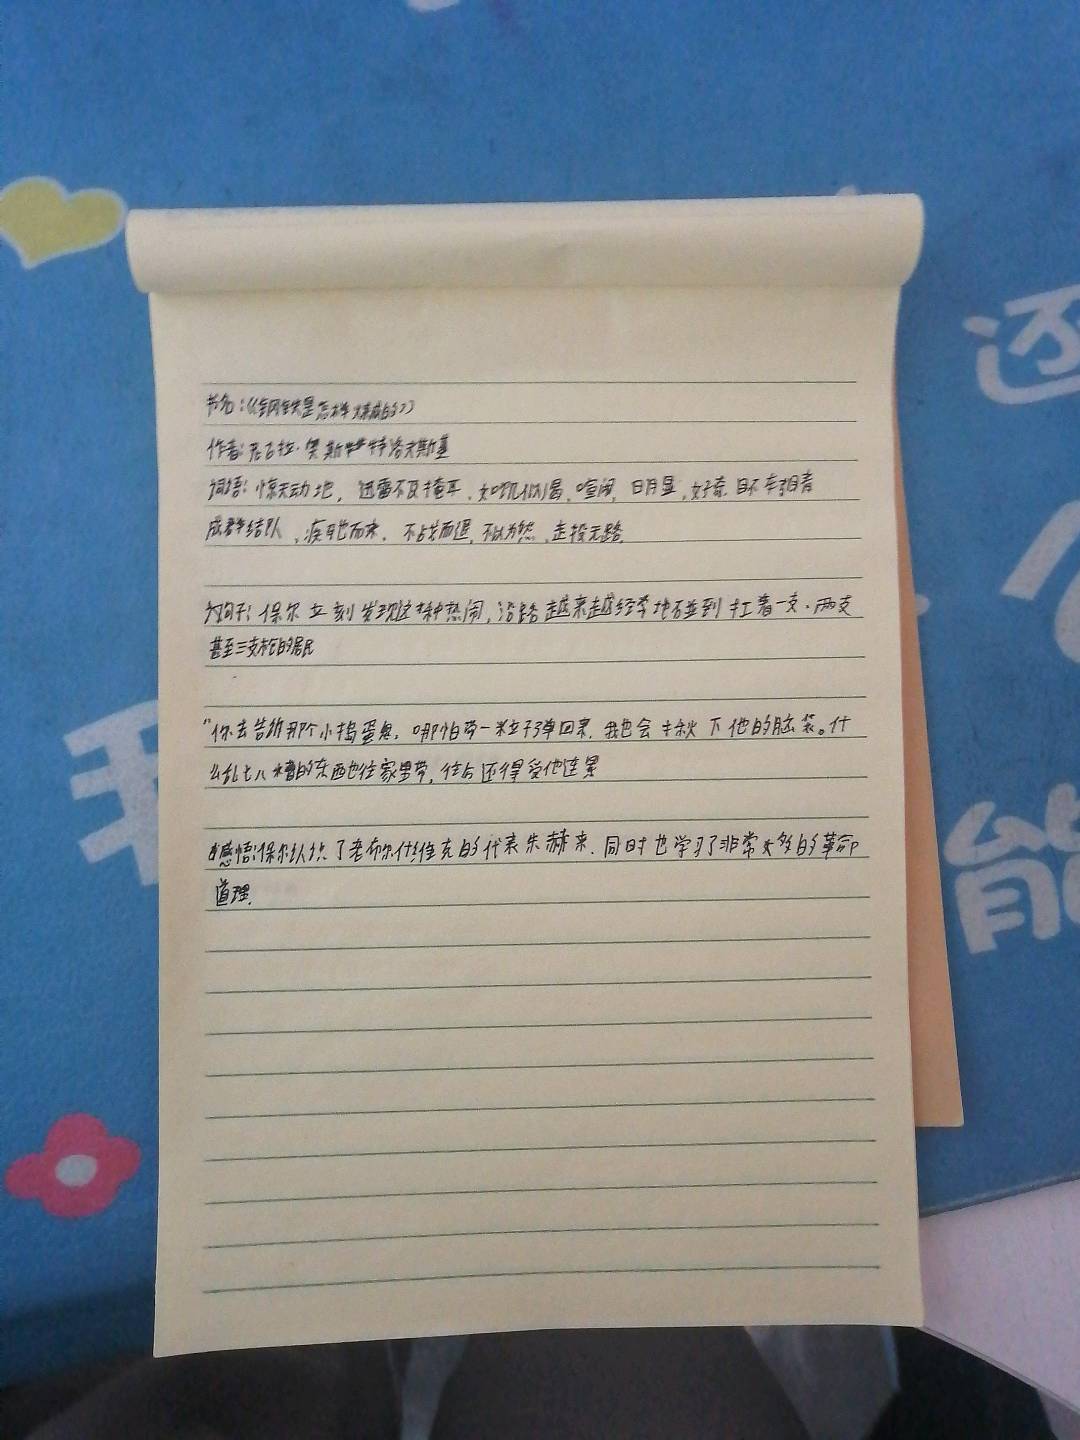 书名:《钢铁是怎样炼成的》
作者:尼古拉·奥斯特洛夫斯基
词语:惊天动地,迅雷不及掩耳,如饥似渴,喧闹,明显,好奇,目不
成群结队,疾驰而来,不战而退,不以为然,走投无路.
句子:保尔立刻发现这种热闹,沿路越来越经常地碰到扛着一支.两支
甚至三支枪的居民
"你去告诉那个小捣蛋鬼,哪怕带一粒子弹回来,我也会揪下他的脑袋。什
么乱七八糟的东西也往家里带,往后还得受他连累
感悟:保尔认识了老布尔什维克的代表朱赫来.同时也学习了非常多的革命
道理.
还
么
我
能